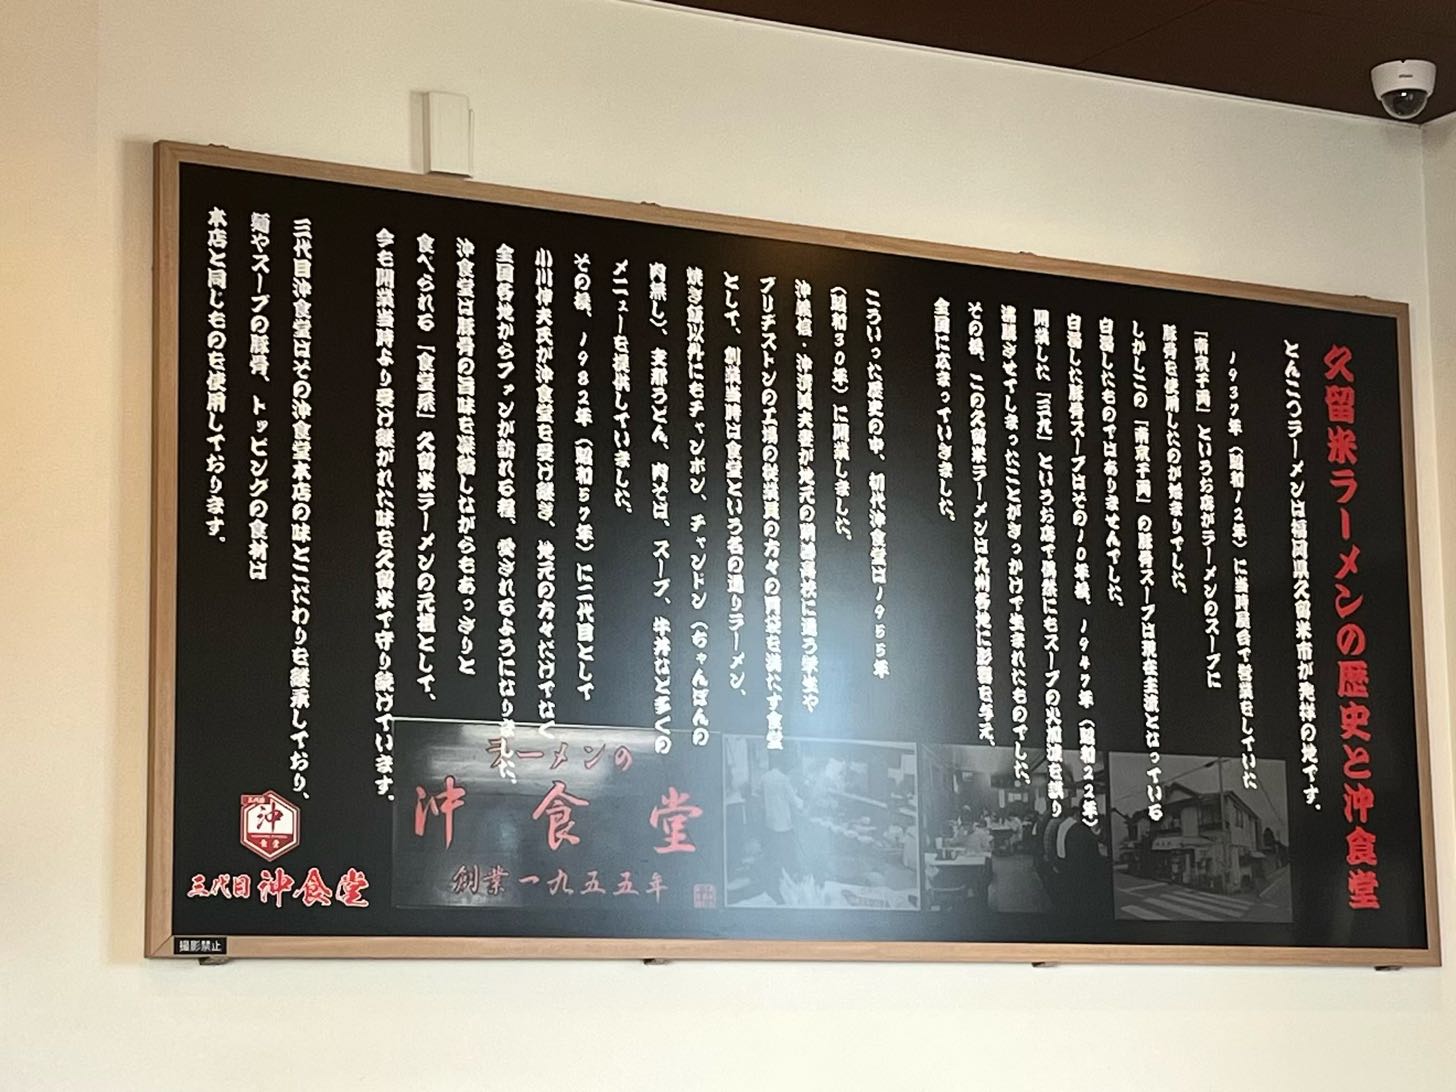 久留米ラーメンの歴史と沖食堂
とんこつラーメンは福岡県久留米市が発祥の地です。
1937年（昭和12年）に当時屋台で営業をしていた
「南京千両」というお店がラーメンのスープに
豚骨を使用したのが始まりでした。
しかしこの「南京千両」の豚骨スープは現在主流となっている
白濁したものではありませんでした。
白濁した豚骨スープはその10年後、1947年（昭和22年）
開業した「三九」というお店で偶然にもスープの火加減を誤り
沸騰させてしまったことがきっかけで生まれたものでした。
その後、この久留米ラーメンは九州各地に影響を与え、
全国に広まっていきました。
こういった歴史の中、初代沖食堂は1955年
（昭和30年）に開業しました。
沖義信・沖清美夫妻が地元の明善高校に通う学生や
ブリヂストンの工場の従業員の方々の胃袋を満たす食堂
として、創業当時は食堂という名の通りラーメン、
焼き飯以外にもチャンポン、チャンドン（ちゃんぽんの
肉無し）、支那うどん、肉そば、スープ、牛丼など多くの
メニューを提供していました。
その後、1982年（昭和57年）に二代目として
小川伸夫氏が沖食堂を受け継ぎ、地元の方々だけでなく
全国各地からファンが訪れる程、愛されるようになりました。
沖食堂は豚骨の旨味を凝縮しながらもあっさりと
食べられる「食堂系」久留米ラーメンの元祖として、
今も開業当時より受け継がれた味を久留米で守り続けています。
三代目沖食堂はその沖食堂本店の味とこだわりを継承しており、
麺やスープの豚骨、トッピングの食材は
本店と同じものを使用しております。
ラーメンの
沖食堂
創業一九五五年
三代目
沖
食堂
三代目沖食堂
撮影禁止